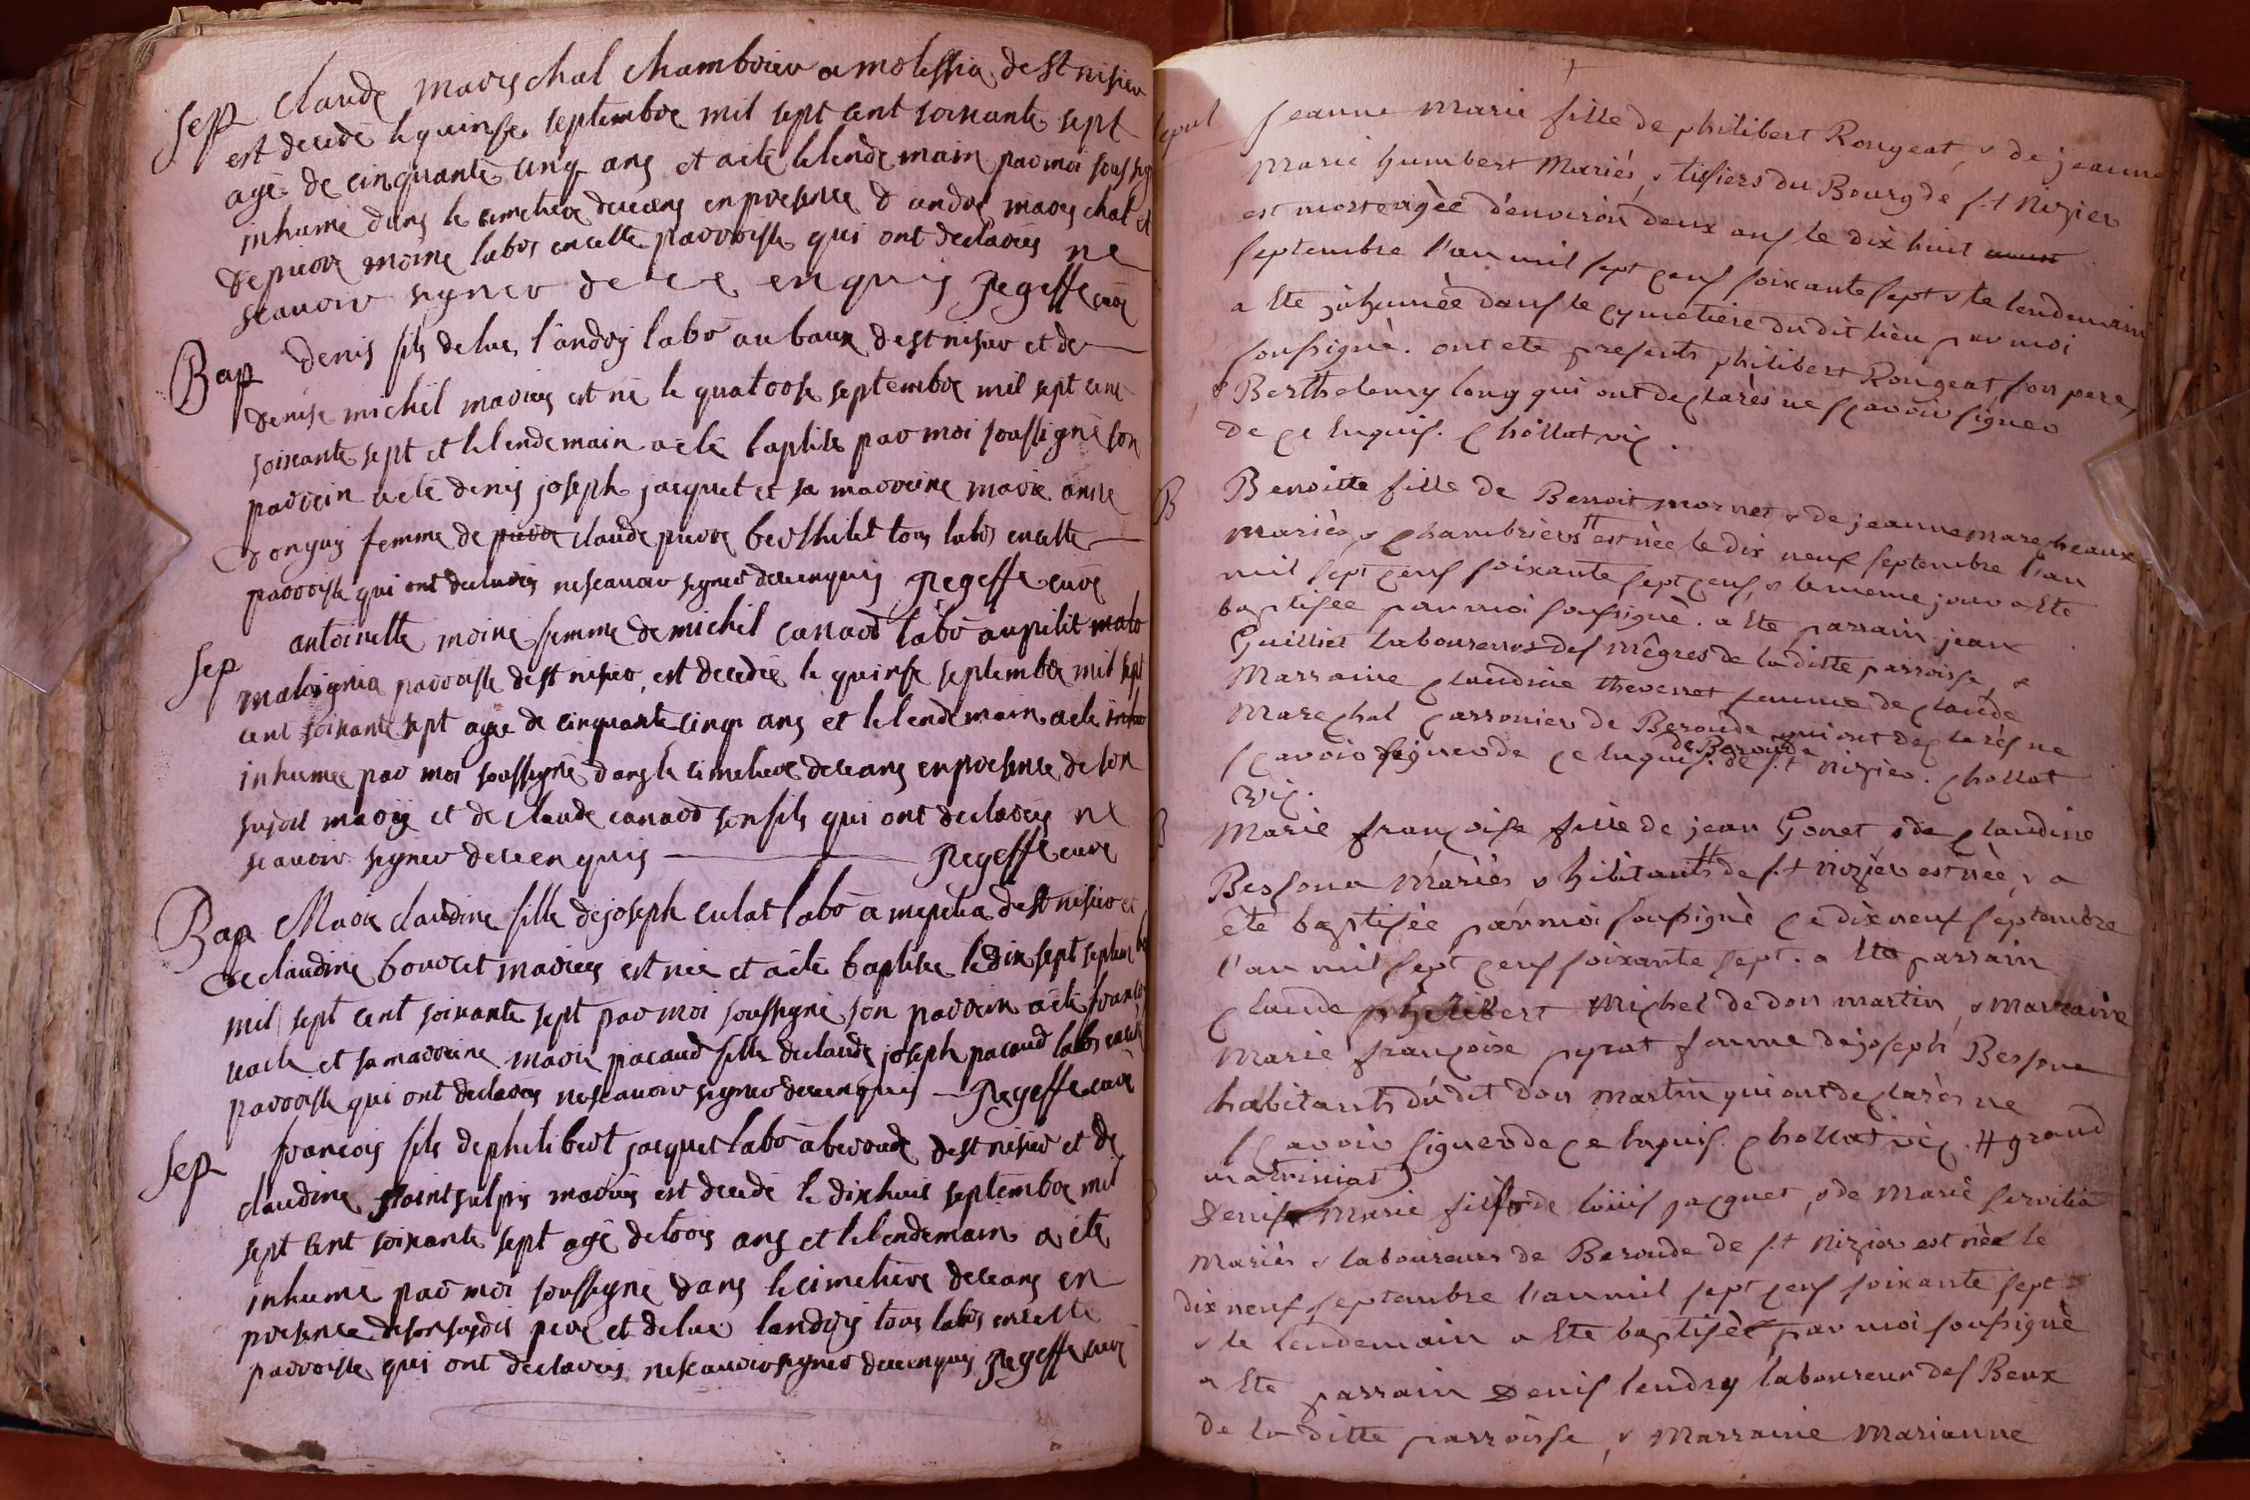 Sep Claude mareschal chambrier a molissia de st nisier
est decedé le quinse septembre mil sept cent soixante sept
agé de cinquante cinq ans et a eté le lendemain par moi soussig
inhumé dans le cimetiere de ceans en presence d andré mareschal et
de pierre moine labrs en cette parroisse qui ont declarés ne
scavoir signer de ce enquis Regeffe curé
Bap denis fils de luc landry labr au baux de st nisier et de
denise michel mariés est né le quatorse septembre mil sept cent
soixante sept et le lendemain a eté baptisé par moi soussigné son
parrein a eté denis joseph jacquet et sa marreine marie
femme de pierre claude pierre berthilet tous labrs en cette
parroisse qui ont declarés ne scavoir signer de ce enquis Regeffe curé
Sep antoinette moine femme de michel canard labr au petit malo
maloignia parroisse de st nisier est decedée le quinse septembre mil sept
cent soixante sept agée de cinquante cinq ans et le lendemain a eté inhu
inhumée par moi soussigné dans le cimetiere de ceans en presence de son
susdit mary et de claude canard son fils qui ont declarés ne
scavoir signer de ce enquis Regeffe curé
Bap Marie claudine fille de joseph culat labr a mepilia de st nisier et
de claudine bouvret mariés est née et a eté baptisée le dix sept septembre
mil sept cent soixante sept par moi soussigné son parrein a eté franco
et sa marreine marie pacaud fille de claude joseph pacaud labrs
parroisse qui ont declarés ne scavoir signer de ce enquis Regeffe curé
Sep francois fils de philibert jacquet labr a beroude de st nisier et de
claudine saint sulpis mariés est decedé le dix huit septembre mil
sept cent soixante sept agé de trois ans et le lendemain a eté
inhumé par moi soussigné dans le cimetiere de ceans en
presence de son susdit pere et de luc landry tous labrs en cette
parroisse qui ont declarés ne scavoir signer de ce enquis Regeffe curé
sepul Jeanne Marie fille de philibert Rongeat, & de jeanne
marie humbert Mariés, & tisiers du Bourg de s.t Nizier
est morte agèe d'environ deux ans le dix huit
septembre l'an mil sept cens soixante sept & le lendemain
a ete inhumèe dans le cymetiere du dit lieu par moi
soussignè. ont ete presents philibert Rongeat son pere,
& Berthelemy long qui ont declarés ne scavoir signer
de ce Enquis. Chollat vic.
B Benoitte fille de Benoit mornet & de jeanne marecheaux
mariés, & chambriers est nèe le dix neuf septembre l'an
mil sept cens soixante sept cens, & le meme jour a ete
baptisée par moi soussignè. a ete parrain jean
Guilliet laboureur des mêgres de la ditte parroisse, &
Marraine claudine thevenot femme de claude
Marechal carronier de Beroude qui ont declarés ne
de Beroude
scavoir signer de ce Enquis. de s.t Nizier. Chollat
vic.
B Marie françoise fille de jean Gonet & de claudine
Bessona Mariés & hibitants de s.t Nizier est nèe, & a
ete baptisée par moi soussignè ce dix neuf septembre
l'an mil sept cens soixante sept. a ete parrain
claude philibert Michel de don martin, & Marraine
Marie françoise pyrat femme de joseph Bessona
habitants du dit don martin qui ont declarés ne
scavoir signer de ce Enquis. Chollat vic. # grand
matrinias
Denise Marie fille de louis jacquet, & de Marie servilia
Mariés & laboureurs de Beroude de s.t Nizier est nèe le
dix neuf septembre l'an mil sept cens soixante sept
& le lendemain a ete baptisée par moi soussignè
a ete parrain Denis lendry laboureur des Beux
de la ditte parroisse, & Marraine Marianne